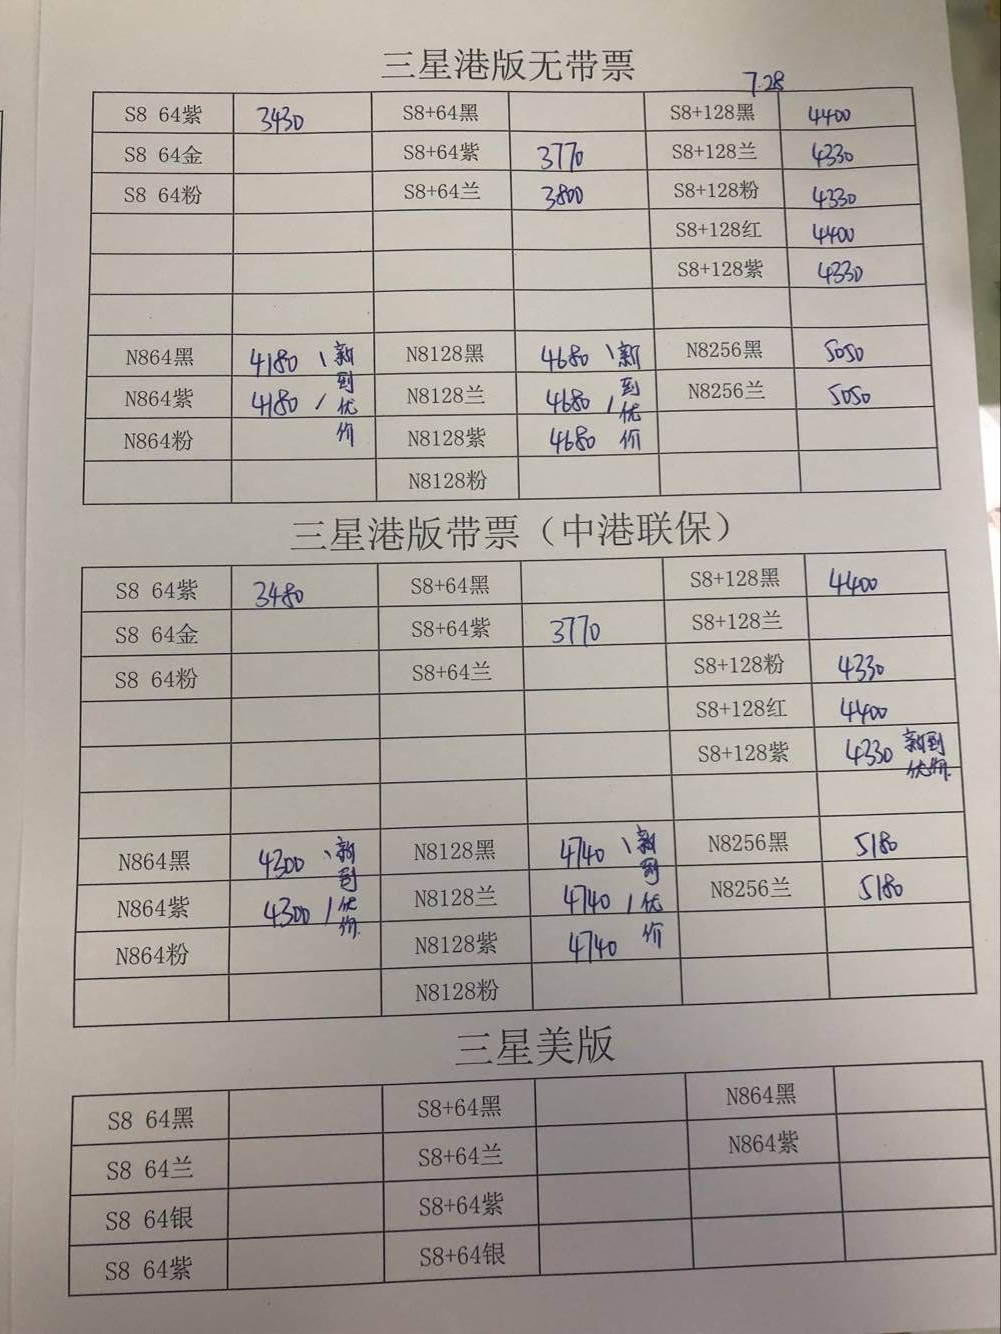 三星港版无带票
7.28
S8 64紫 3430 S8+64黑 S8+128黑 4400
S8 64金 S8+64紫 3770 S8+128兰 4330
S8 64粉 S8+64兰 3800 S8+128粉 4330
S8+128红 4400
S8+128紫 4330
N864黑 4180 \ 新 N8128黑 4680 \ 新 N8256黑 5050
到 到
N864紫 4180 / 优 N8128兰 4680 / 优 N8256兰 5050
N864粉 价 N8128紫 4680 价
N8128粉
三星港版带票（中港联保）
S8 64紫 3480 S8+64黑 S8+128黑 4400
S8 64金 S8+64紫 3770 S8+128兰
S8 64粉 S8+64兰 S8+128粉 4330
S8+128红 4400
S8+128紫 4330 新到
优价
N864黑 4300 \ 新 N8128黑 4740 \ 新 N8256黑 5180
到 到
N864紫 4300 / 优 N8128兰 4740 / 优 N8256兰 5180
N864粉 价 N8128紫 4740 价
N8128粉
三星美版
S8 64黑 S8+64黑 N864黑
S8 64兰 S8+64兰 N864紫
S8 64银 S8+64紫
S8 64紫 S8+64银